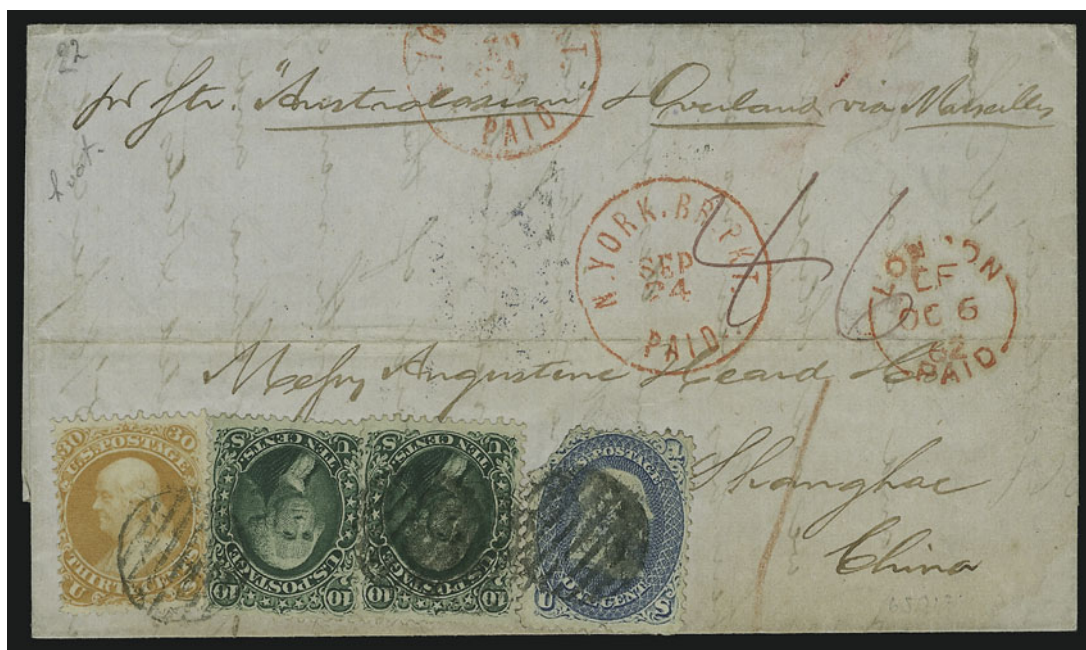 22
PAID
pr Str. "Australasian" & Overland via Marseilles
N. YORK. BR. PKT.
SEP
24
PAID
46
LONDON
EF
OC 6
62
PAID
Messrs Augustine Heard & Co
Shanghae
China
30 30
U.S. POSTAGE
THIRTY
U
U S
TEN CENTS
U.S. POSTAGE
10 10
U S
TEN CENTS
U.S. POSTAGE
10 10
U.S. POSTAGE
ONE CENT
U S